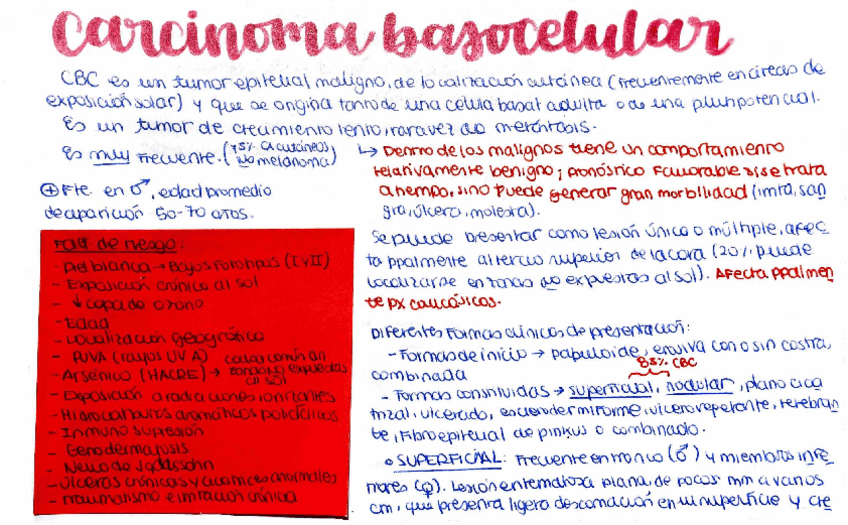 Carcinoma basocelular
CBC es un tumor epitelial maligno, de localización cutánea (frecuentemente en áreas de
exposición solar) y que se origina tanto de una celula basal adulta o de una pluripotencial.
Es un tumor de crecimiento lento, rara vez da metástasis.
Es muy frecuente. (75% CA cutáneos no melanoma)
⊕ Fte. en ♂, edad promedio
de aparición 50-70 años.
↳ Dentro de los malignos tiene un comportamiento
relativamente benigno; pronóstico favorable si se trata
a tiempo, sino puede generar gran morbilidad (irrita, san
gra, úlcera, molesta).
Se puede presentar como lesión único o múltiple, afec
ta ppalmente al tercio superior de la cara (20% puede
localizarse en zonas no expuestas al sol). Afecta ppalmen
te px caucásicos.
Fact de riesgo:
- Piel blanca → Bajos fototipos (I y II)
- Exposición crónica al sol
- ↓ capa de ozono
- Edad
- Localización geográfica
- PUVA (rayos UV A)
- Arsénico (HACRE) → causa común en zonas no expuestas al sol
- Exposición a radiaciones ionizantes
- Hidrocarburos aromáticos policíclicos
- Inmunosupresión
- Genodermatosis
- Nevo de Jadassohn
- Ulceros crónicos y cicatrices anormales
- Traumatismo e irritación crónica
Diferentes formas clínicas de presentación:
- Formas de inicio → papuloide, erosiva con o sin costra,
combinada
85% CBC
- Formas constituidas → superficial, nodular, plano cica
trizal, ulcerado, esclerodermiforme, vegetante, terebran
te, fibroepitelial de pinkus o combinado.
∘ SUPERFICIAL: Frecuente en tronco (♂) y miembros infe
riores (♀). Lesión eritematosa plana, de pocos mm a varios
cm, que presenta ligera descamación en su superficie y cre